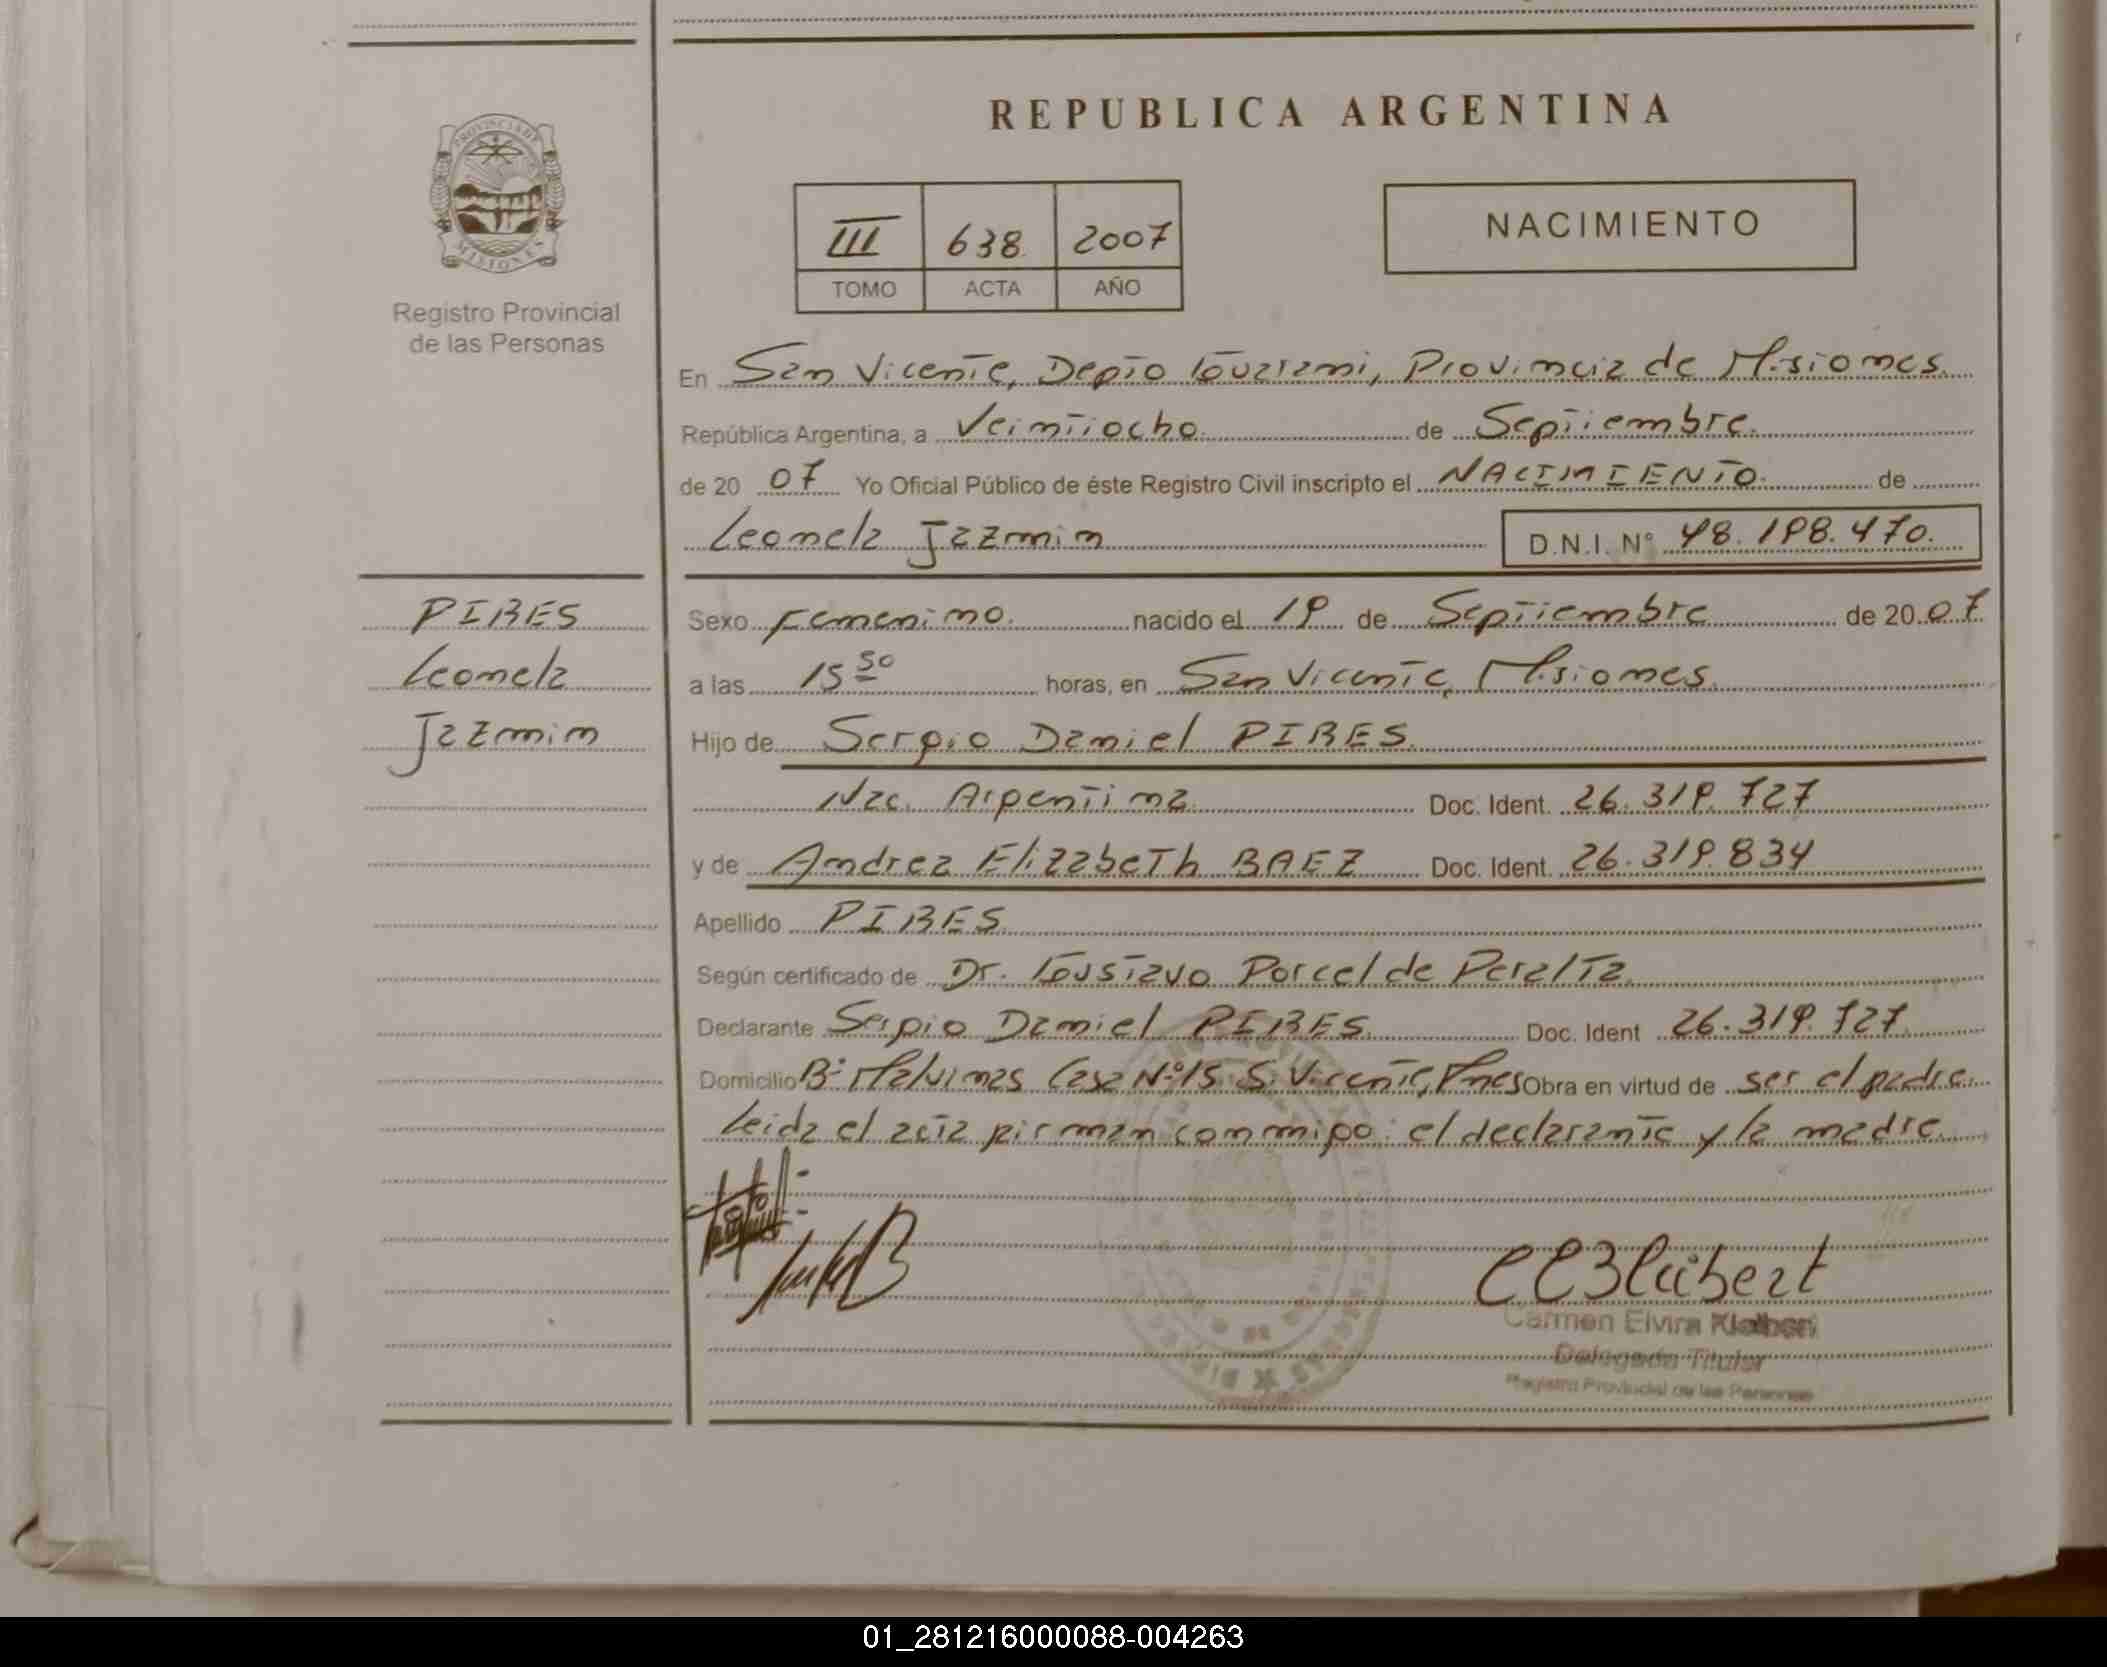 REPUBLICA ARGENTINA
PROVINCIA DE
MISIONES
Registro Provincial
de las Personas
III 638 2007
TOMO ACTA AÑO
NACIMIENTO
En San Vicente, Depto Guarani, Provincia de Misiones.
República Argentina, a Veintiocho. de Septiembre.
de 20 07 Yo Oficial Público de éste Registro Civil inscripto el NACIMIENTO. de
Leonela Jazmin D.N.I. Nº 48.198.470.
PIRES
Leonela
Jazmin
Sexo Femenino. nacido el 19 de Septiembre de 20 07
a las 15 50 horas, en San Vicente, Misiones.
Hijo de Sergio Daniel PIRES.
Nac. Argentina Doc. Ident. 26.319.727
y de Andrea Elizabeth BAEZ Doc. Ident. 26.319.834
Apellido PIRES
Según certificado de Dr. Gustavo Porcel de Peralta.
Declarante Sergio Daniel PIRES. Doc. Ident 26.319.727
Domicilio Bº Malvinas Casa Nº 15 S. Vicente, Mnes Obra en virtud de ser el padre.
Leida el acta firman conmigo: el declarante y la madre.
Carmen Elvira
Delegada Titular
Registro Provincial de las Personas
01_281216000088-004263